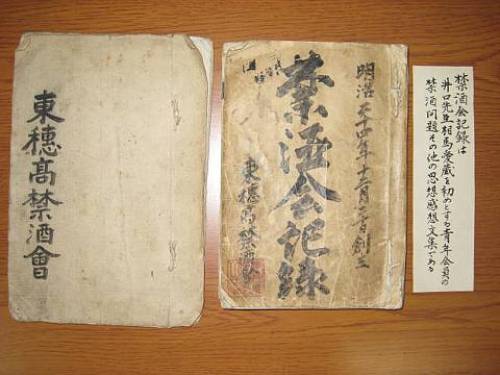 禁酒会記録は
井口先生相馬愛蔵を初めとする青年会員の
禁酒問題その他の思想感想文集である
明治二十四年十二月 創立
禁酒会記録
東穂高禁酒會
東穂髙禁酒會